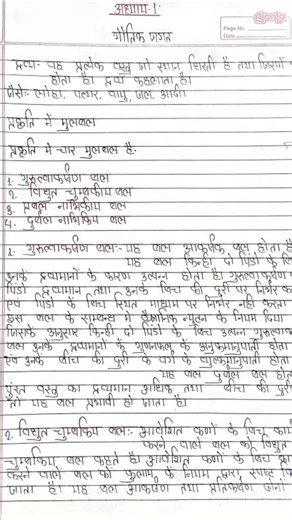 अध्याय-1
Page No.
Date
भौतिक जगत
द्रव्य:- वह प्रत्येक वस्तु जो स्थान घेरती है तथा जिसमें
होता है। द्रव्य कहलाता है।
जैसे:- लोहा, पत्थर, वायु, जल, आदि।
प्रकृति में मुलबल
प्रकृति में चार मुलबल है-
1. गुरुत्वाकर्षण बल
२. विद्युत चुम्बकीय बल
3. प्रबल नाभिकीय बल
4. दुर्बल नाभिकीय बल
1. गुरुत्वाकर्षण बल:- यह बल आकर्षक बल होता है
यह बल किन्ही दो पिंडो के
उनके द्रव्यमानों के कारण उत्पन्न होता है। गुरुत्वाकर्षण
पिंडो द्रव्यमान तथा उनके बिच की दुरी पर निर्भर
एवं पिंडो के बिच स्थित माध्यम पर निर्भर नही करता
इस बल के सम्बन्ध में वैज्ञानिक न्यूटन के नियम दिया
जिसके अनुसार किन्ही दो पिंडो के बिच उत्पन्न
बल उनके द्रव्यमानों के गुणनफल के अनुक्रमानुपाती होता
एवं उनके बीच की दुरी के वर्ग के व्युत्क्रमानुपाती होता
यह बल दुर्बल बल
वस्तु का द्रव्यमान अधिक तथा बीच की दुरी
तो यह बल प्रभावी हो जाता है।
२. विद्युत चुम्बकिय बल:- आवेशित कणों के बिच
करने वाले बल को विद्युत
चुम्बकिय बल कहते है। आवेशित कणों के बिच
करने वाले बल को कुलाम के नियम द्वारा स्पष्ट
जाता है। यह बल आकर्षण तथा प्रतिकर्षण दोनों